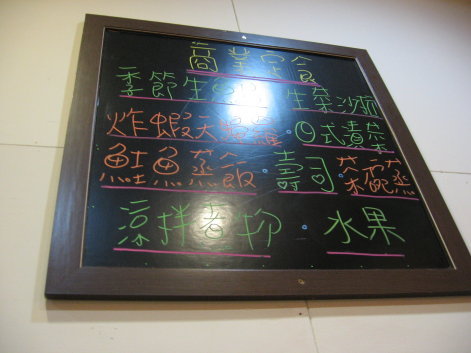 商業定食
季節生魚片 生菜沙拉
炸蝦天婦羅·日式煮菜
鮭魚蒸飯·壽司·茶碗蒸
涼拌 · 水果